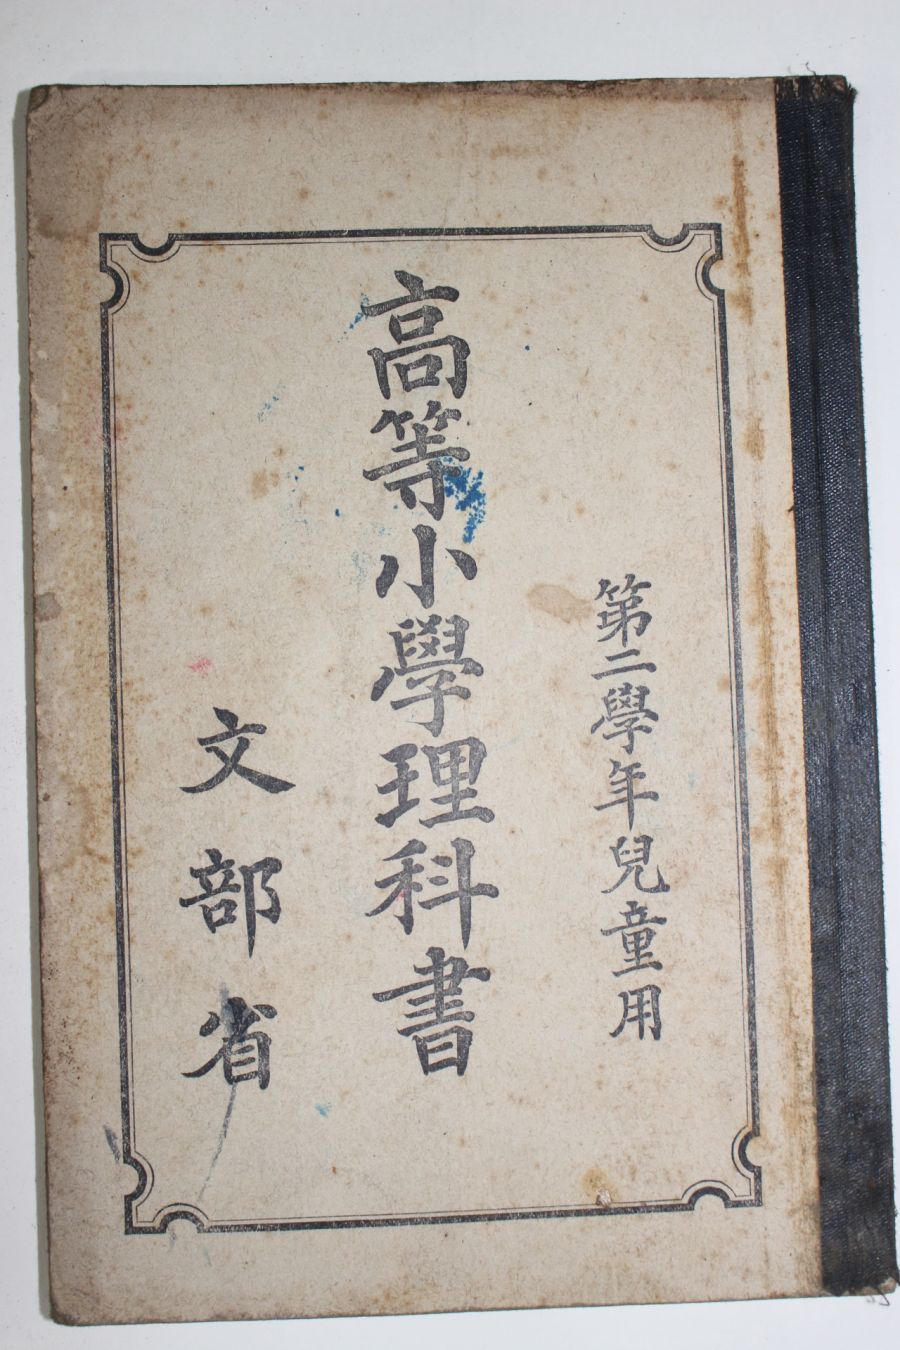 第二學年兒童用
高等小學理科書
文部省